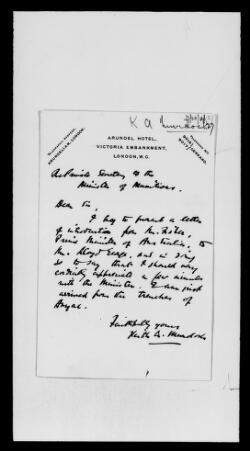 K A Murdoch
ARUNDEL HOTEL,
VICTORIA EMBANKMENT,
LONDON, W.C.
Private Secretary to the
Minister of Munitions.
Dear Sir,
I beg to present a letter
of introduction from Mr. Fisher,
Prime Minister of Australia, to
Mr. Lloyd George, and in doing
so to say that I should very
cordially appreciate a few minutes
with the Minister. I am just
arrived from the trenches of
Anzac.
Faithfully yours
Keith A. Murdoch